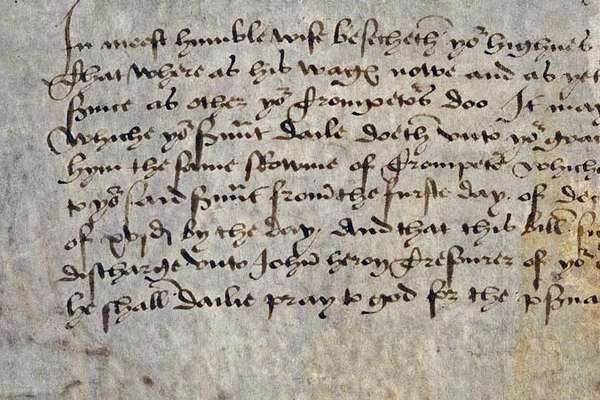 In moest humble wise besecheth yor highnes
That where as his wagꝭ nowe and as yet
suice as other yor Trompetors doo It may
Whiche yor suut daile doeth unto yor gra
hym the same Rowme of Trompetr whiche
to yor said suut from the furste day of dec
of xvjd by the day And that this bill
discharge unto John heron Tresurer of yor
he shall dailie pray to god for the psua